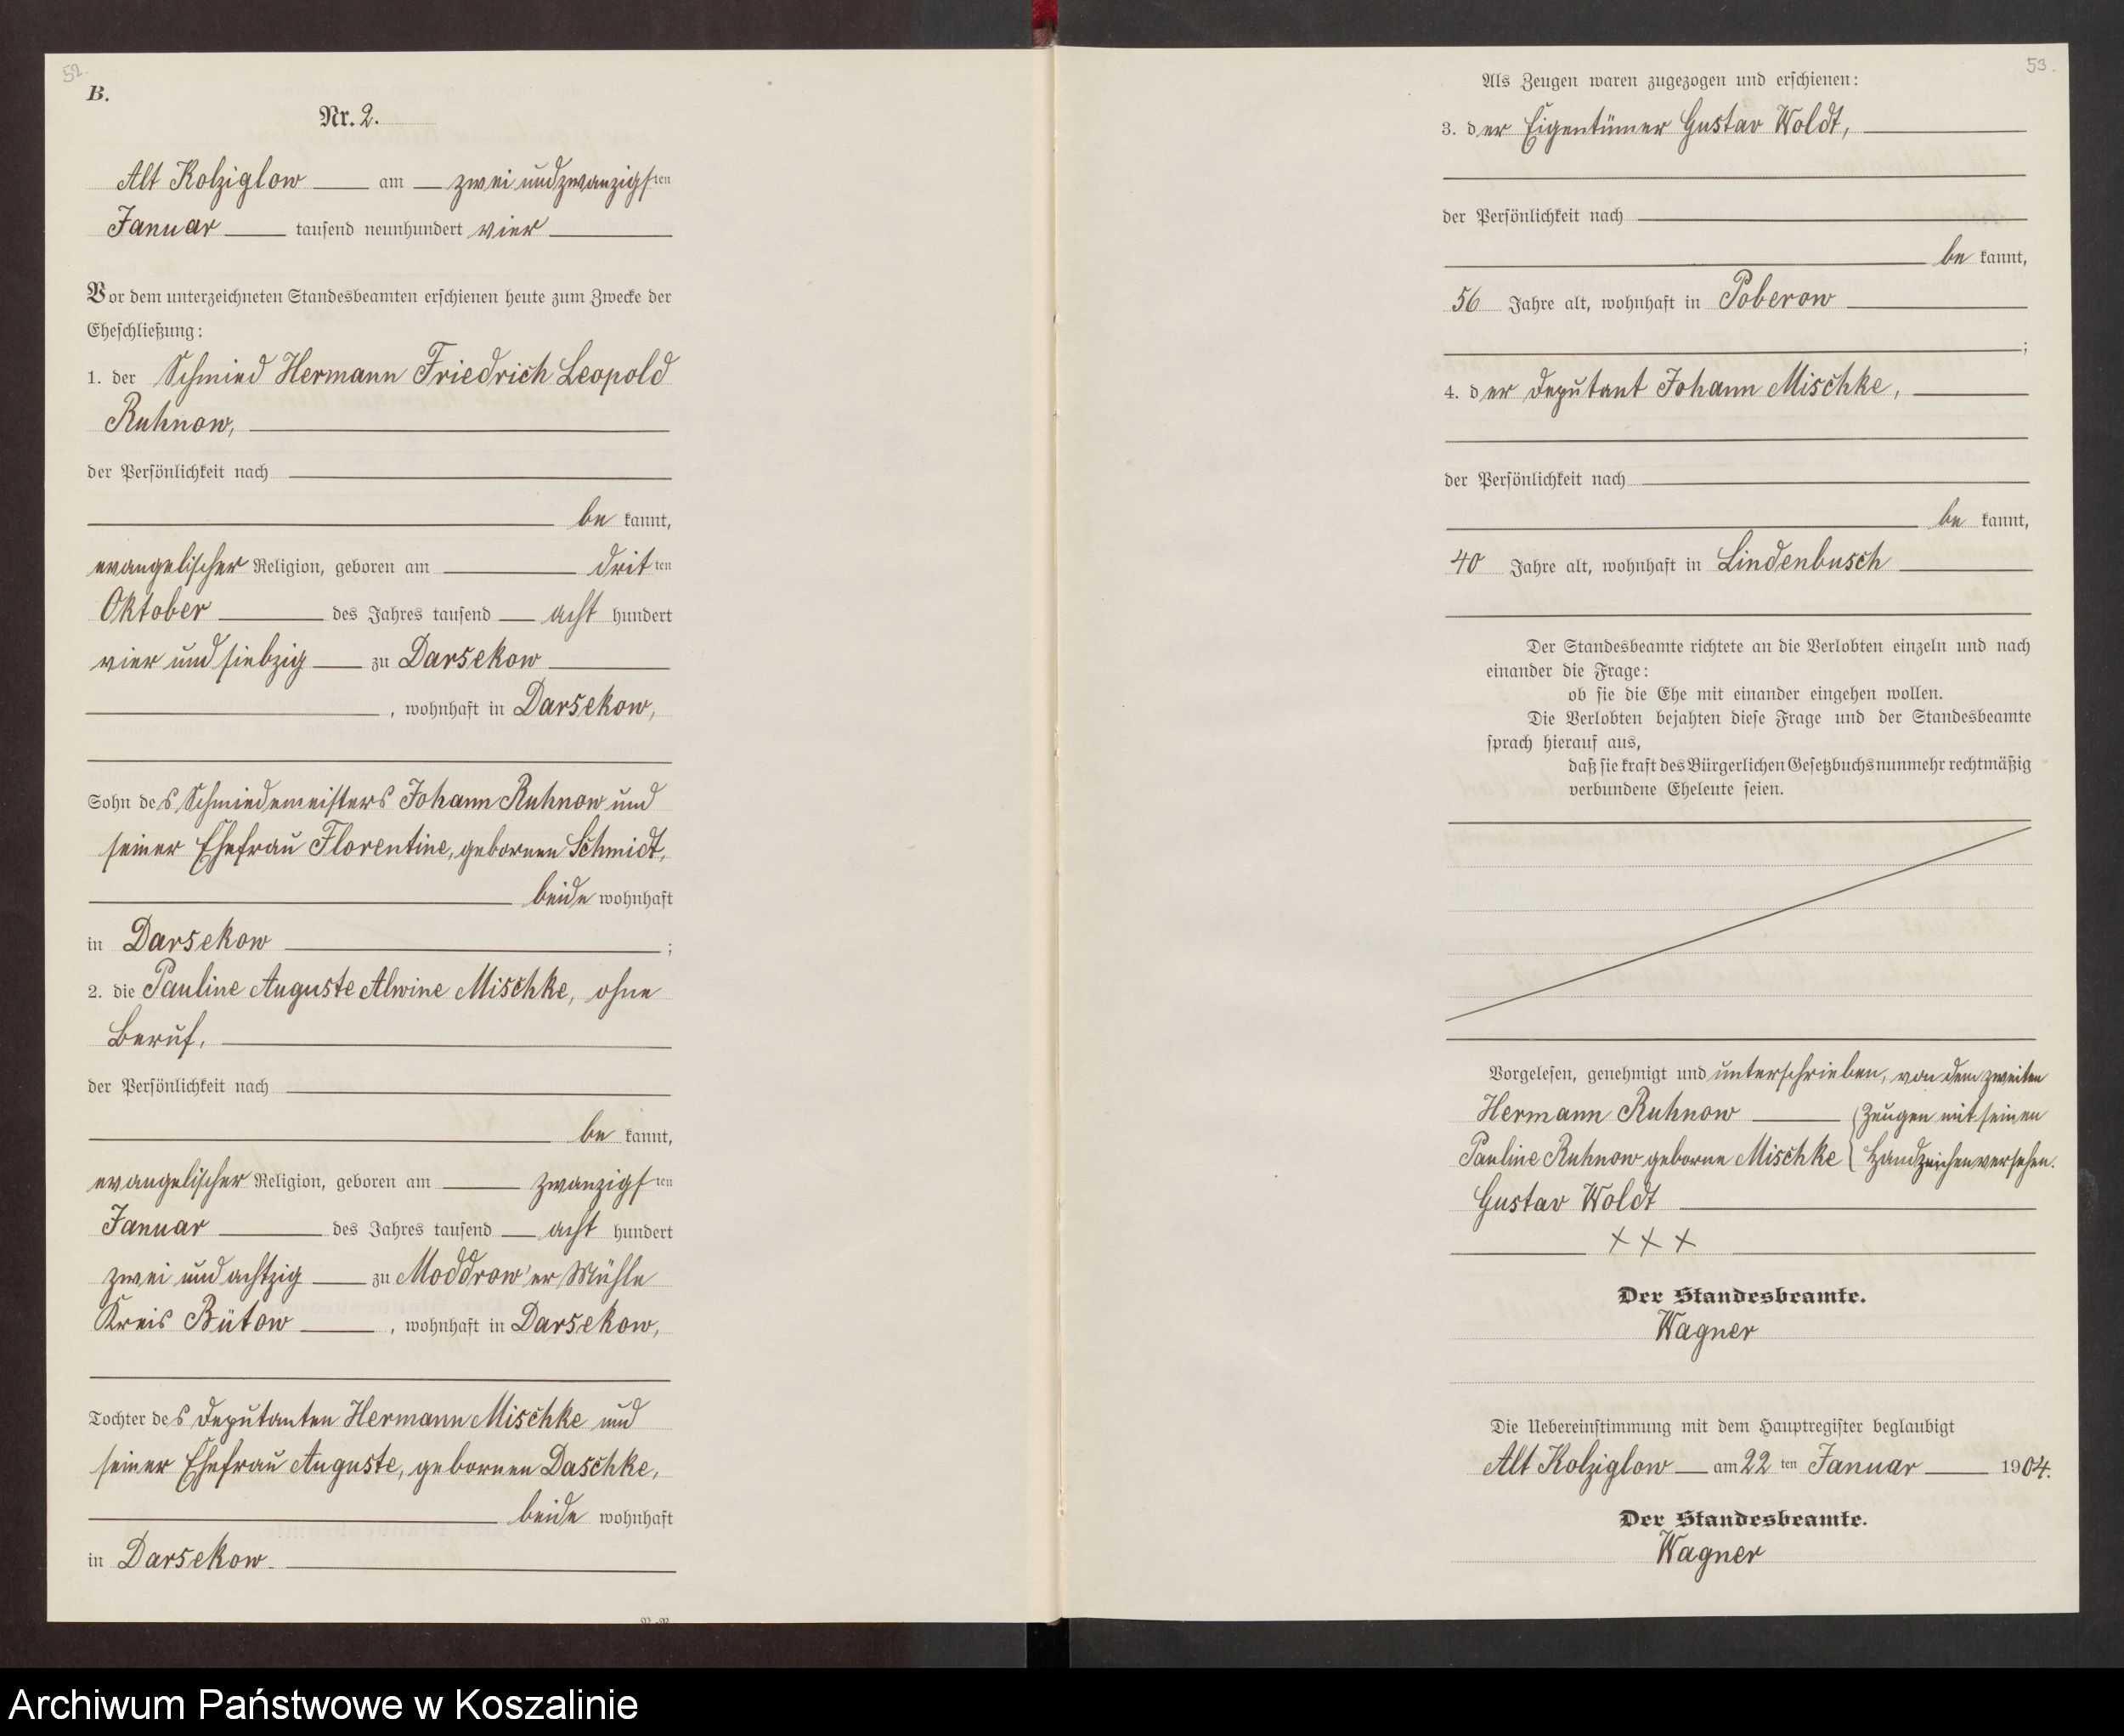 52.
B.
Nr. 2.
Alt Kolziglow am zwei und zwanzigsten
Januar tausend neunhundert vier
Vor dem unterzeichneten Standesbeamten erschienen heute zum Zwecke der
Eheschließung:
1. der Schmied Hermann Friedrich Leopold
Ruhnow,
der Persönlichkeit nach
be kannt,
evangelischer Religion, geboren am dritten
Oktober des Jahres tausend acht hundert
vier und siebzig zu Darsekow
, wohnhaft in Darsekow,
Sohn des Schmiedemeisters Johann Ruhnow und
seiner Ehefrau Florentine, gebornen Schmidt,
beide wohnhaft
in Darsekow ;
2. die Pauline Auguste Alwine Mischke, ohne
Beruf,
der Persönlichkeit nach
be kannt,
evangelischer Religion, geboren am zwanzigsten
Januar des Jahres tausend acht hundert
zwei und achtzig zu Moddrow'er Mühle
Kreis Bütow , wohnhaft in Darsekow,
Tochter des Deputanten Hermann Mischke und
seiner Ehefrau Auguste, gebornen Daschke,
beide wohnhaft
in Darsekow.
53.
Als Zeugen waren zugezogen und erschienen:
3. der Eigentümer Gustav Woldt,
der Persönlichkeit nach
be kannt,
56 Jahre alt, wohnhaft in Poberow
;
4. der Deputant Johann Mischke,
der Persönlichkeit nach
be kannt,
40 Jahre alt, wohnhaft in Lindenbusch
Der Standesbeamte richtete an die Verlobten einzeln und nach
einander die Frage:
ob sie die Ehe mit einander eingehen wollen.
Die Verlobten bejahten diese Frage und der Standesbeamte
sprach hierauf aus,
daß sie kraft des Bürgerlichen Gesetzbuchs nunmehr rechtmäßig
verbundene Eheleute seien.
Vorgelesen, genehmigt und unterschrieben, von dem zweiten
Hermann Ruhnow Zeugen mit seinen
Pauline Ruhnow geborne Mischke Handzeichen versehen.
Gustav Woldt
+ + +
Der Standesbeamte.
Wagner
Die Uebereinstimmung mit dem Hauptregister beglaubigt
Alt Kolziglow am 22 ten Januar 1904.
Der Standesbeamte.
Wagner
Archiwum Państwowe w Koszalinie